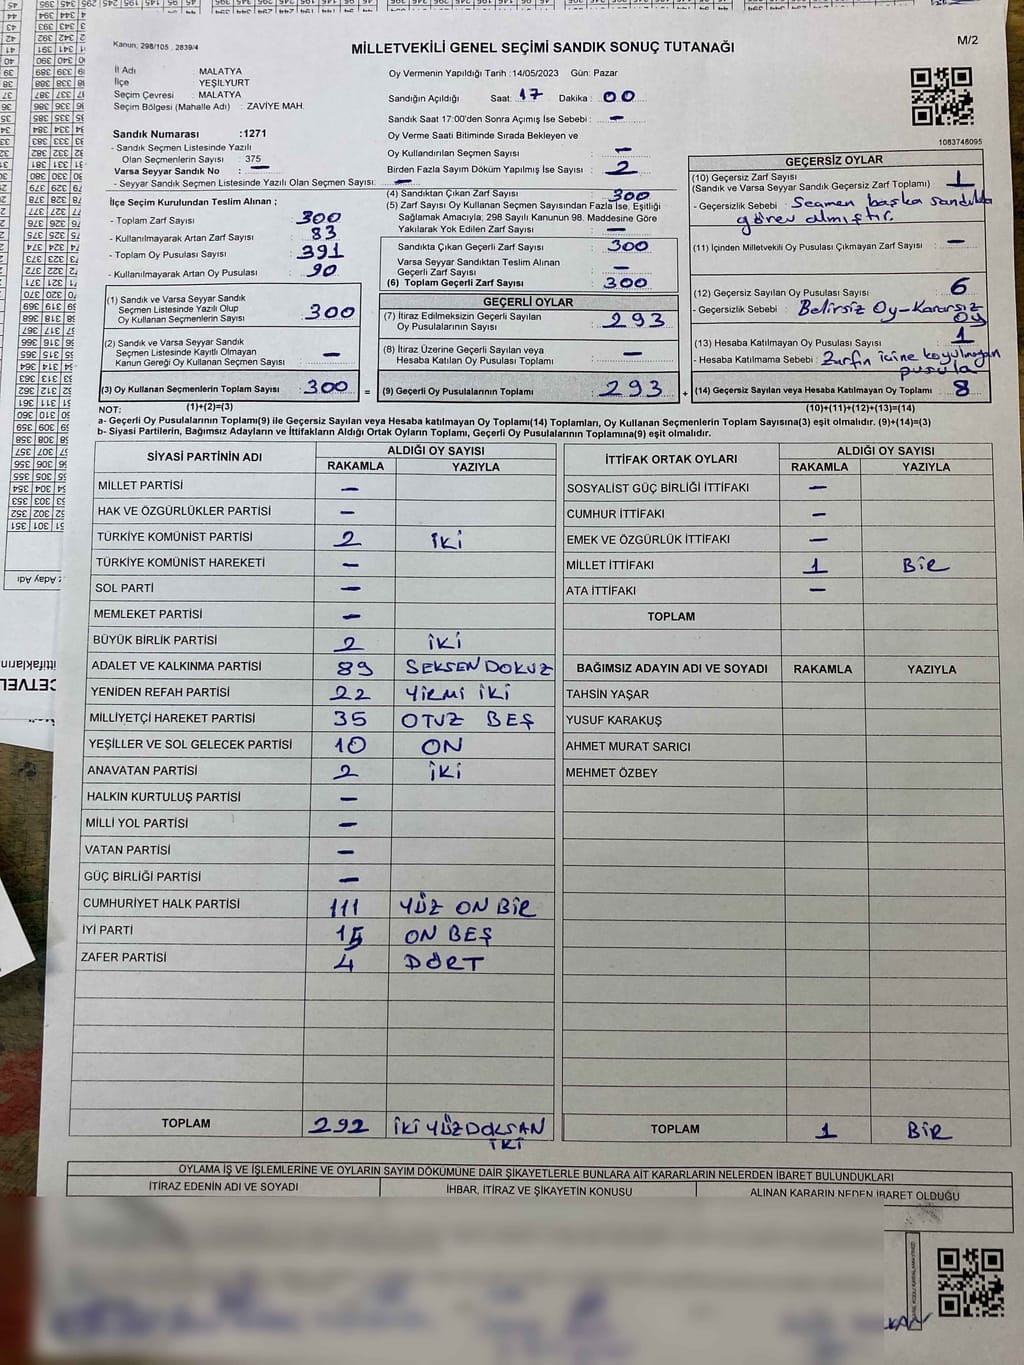 Kanun; 298/105 , 2839/4
MİLLETVEKİLİ GENEL SEÇİMİ SANDIK SONUÇ TUTANAĞI
M/2
İl Adı : MALATYA
İlçe : YEŞİLYURT
Seçim Çevresi : MALATYA
Seçim Bölgesi (Mahalle Adı) : ZAVİYE MAH.
Sandık Numarası :1271
- Sandık Seçmen Listesinde Yazılı
Olan Seçmenlerin Sayısı : 375
Varsa Seyyar Sandık No : —
- Seyyar Sandık Seçmen Listesinde Yazılı Olan Seçmen Sayısı: —
İlçe Seçim Kurulundan Teslim Alınan ;
- Toplam Zarf Sayısı : 300
- Kullanılmayarak Artan Zarf Sayısı : 83
- Toplam Oy Pusulası Sayısı : 391
- Kullanılmayarak Artan Oy Pusulası : 90
(1) Sandık ve Varsa Seyyar Sandık
Seçmen Listesinde Yazılı Olup
Oy Kullanan Seçmenlerin Sayısı : 300
(2) Sandık ve Varsa Seyyar Sandık
Seçmen Listesinde Kayıtlı Olmayan
Kanun Gereği Oy Kullanan Seçmen Sayısı : —
(3) Oy Kullanan Seçmenlerin Toplam Sayısı : 300 =
(1)+(2)=(3)
Oy Vermenin Yapıldığı Tarih :14/05/2023 Gün: Pazar
Sandığın Açıldığı Saat: 17 Dakika : 00
Sandık Saat 17:00'den Sonra Açılmış İse Sebebi : —
Oy Verme Saati Bitiminde Sırada Bekleyen ve
Oy Kullandırılan Seçmen Sayısı : —
Birden Fazla Sayım Döküm Yapılmış İse Sayısı : 2
(4) Sandıktan Çıkan Zarf Sayısı : 300
(5) Zarf Sayısı Oy Kullanan Seçmen Sayısından Fazla İse, Eşitliği
Sağlamak Amacıyla; 298 Sayılı Kanunun 98. Maddesine Göre
Yakılarak Yok Edilen Zarf Sayısı : —
Sandıkta Çıkan Geçerli Zarf Sayısı : 300
Varsa Seyyar Sandıktan Teslim Alınan
Geçerli Zarf Sayısı : —
(6) Toplam Geçerli Zarf Sayısı : 300
GEÇERLİ OYLAR
(7) İtiraz Edilmeksizin Geçerli Sayılan
Oy Pusulalarının Sayısı : 293
(8) İtiraz Üzerine Geçerli Sayılan veya
Hesaba Katılan Oy Pusulası Toplamı : —
(9) Geçerli Oy Pusulalarının Toplamı : 293 +
1083748095
GEÇERSİZ OYLAR
(10) Geçersiz Zarf Sayısı
(Sandık ve Varsa Seyyar Sandık Geçersiz Zarf Toplamı) : 1
- Geçersizlik Sebebi : Seçmen başka sandıkta
görev almıştır.
(11) İçinden Milletvekili Oy Pusulası Çıkmayan Zarf Sayısı : —
(12) Geçersiz Sayılan Oy Pusulası Sayısı : 6
- Geçersizlik Sebebi : Belirsiz Oy-Kararsız
Oy
(13) Hesaba Katılmayan Oy Pusulası Sayısı : 1
- Hesaba Katılmama Sebebi : Zarfın içine koyulmayan
pusula
(14) Geçersiz Sayılan veya Hesaba Katılmayan Oy Toplamı : 8
(10)+(11)+(12)+(13)=(14)
NOT:
a- Geçerli Oy Pusulalarının Toplamı(9) ile Geçersiz Sayılan veya Hesaba katılmayan Oy Toplamı(14) Toplamları, Oy Kullanan Seçmenlerin Toplam Sayısına(3) eşit olmalıdır. (9)+(14)=(3)
b- Siyasi Partilerin, Bağımsız Adayların ve İttifakların Aldığı Ortak Oyların Toplamı, Geçerli Oy Pusulalarının Toplamına(9) eşit olmalıdır.
SİYASİ PARTİNİN ADI ALDIĞI OY SAYISI
RAKAMLA YAZIYLA
MİLLET PARTİSİ —
HAK VE ÖZGÜRLÜKLER PARTİSİ —
TÜRKİYE KOMÜNİST PARTİSİ 2 İKİ
TÜRKİYE KOMÜNİST HAREKETİ —
SOL PARTİ —
MEMLEKET PARTİSİ —
BÜYÜK BİRLİK PARTİSİ 2 İKİ
ADALET VE KALKINMA PARTİSİ 89 SEKSEN DOKUZ
YENİDEN REFAH PARTİSİ 22 YİRMİ İKİ
MİLLİYETÇİ HAREKET PARTİSİ 35 OTUZ BEŞ
YEŞİLLER VE SOL GELECEK PARTİSİ 10 ON
ANAVATAN PARTİSİ 2 İKİ
HALKIN KURTULUŞ PARTİSİ —
MİLLİ YOL PARTİSİ —
VATAN PARTİSİ —
GÜÇ BİRLİĞİ PARTİSİ —
CUMHURİYET HALK PARTİSİ 111 YÜZ ON BİR
İYİ PARTİ 15 ON BEŞ
ZAFER PARTİSİ 4 DÖRT
TOPLAM 292 İKİ YÜZ DOKSAN
İKİ
İTTİFAK ORTAK OYLARI ALDIĞI OY SAYISI
RAKAMLA YAZIYLA
SOSYALİST GÜÇ BİRLİĞİ İTTİFAKI —
CUMHUR İTTİFAKI —
EMEK VE ÖZGÜRLÜK İTTİFAKI —
MİLLET İTTİFAKI 1 BİR
ATA İTTİFAKI —
TOPLAM
BAĞIMSIZ ADAYIN ADI VE SOYADI RAKAMLA YAZIYLA
TAHSİN YAŞAR
YUSUF KARAKUŞ
AHMET MURAT SARICI
MEHMET ÖZBEY
TOPLAM 1 BİR
OYLAMA İŞ VE İŞLEMLERİNE VE OYLARIN SAYIM DÖKÜMÜNE DAİR ŞİKAYETLERLE BUNLARA AİT KARARLARIN NELERDEN İBARET BULUNDUKLARI
İTİRAZ EDENİN ADI VE SOYADI İHBAR, İTİRAZ VE ŞİKAYETİN KONUSU ALINAN KARARIN NEDEN İBARET OLDUĞU